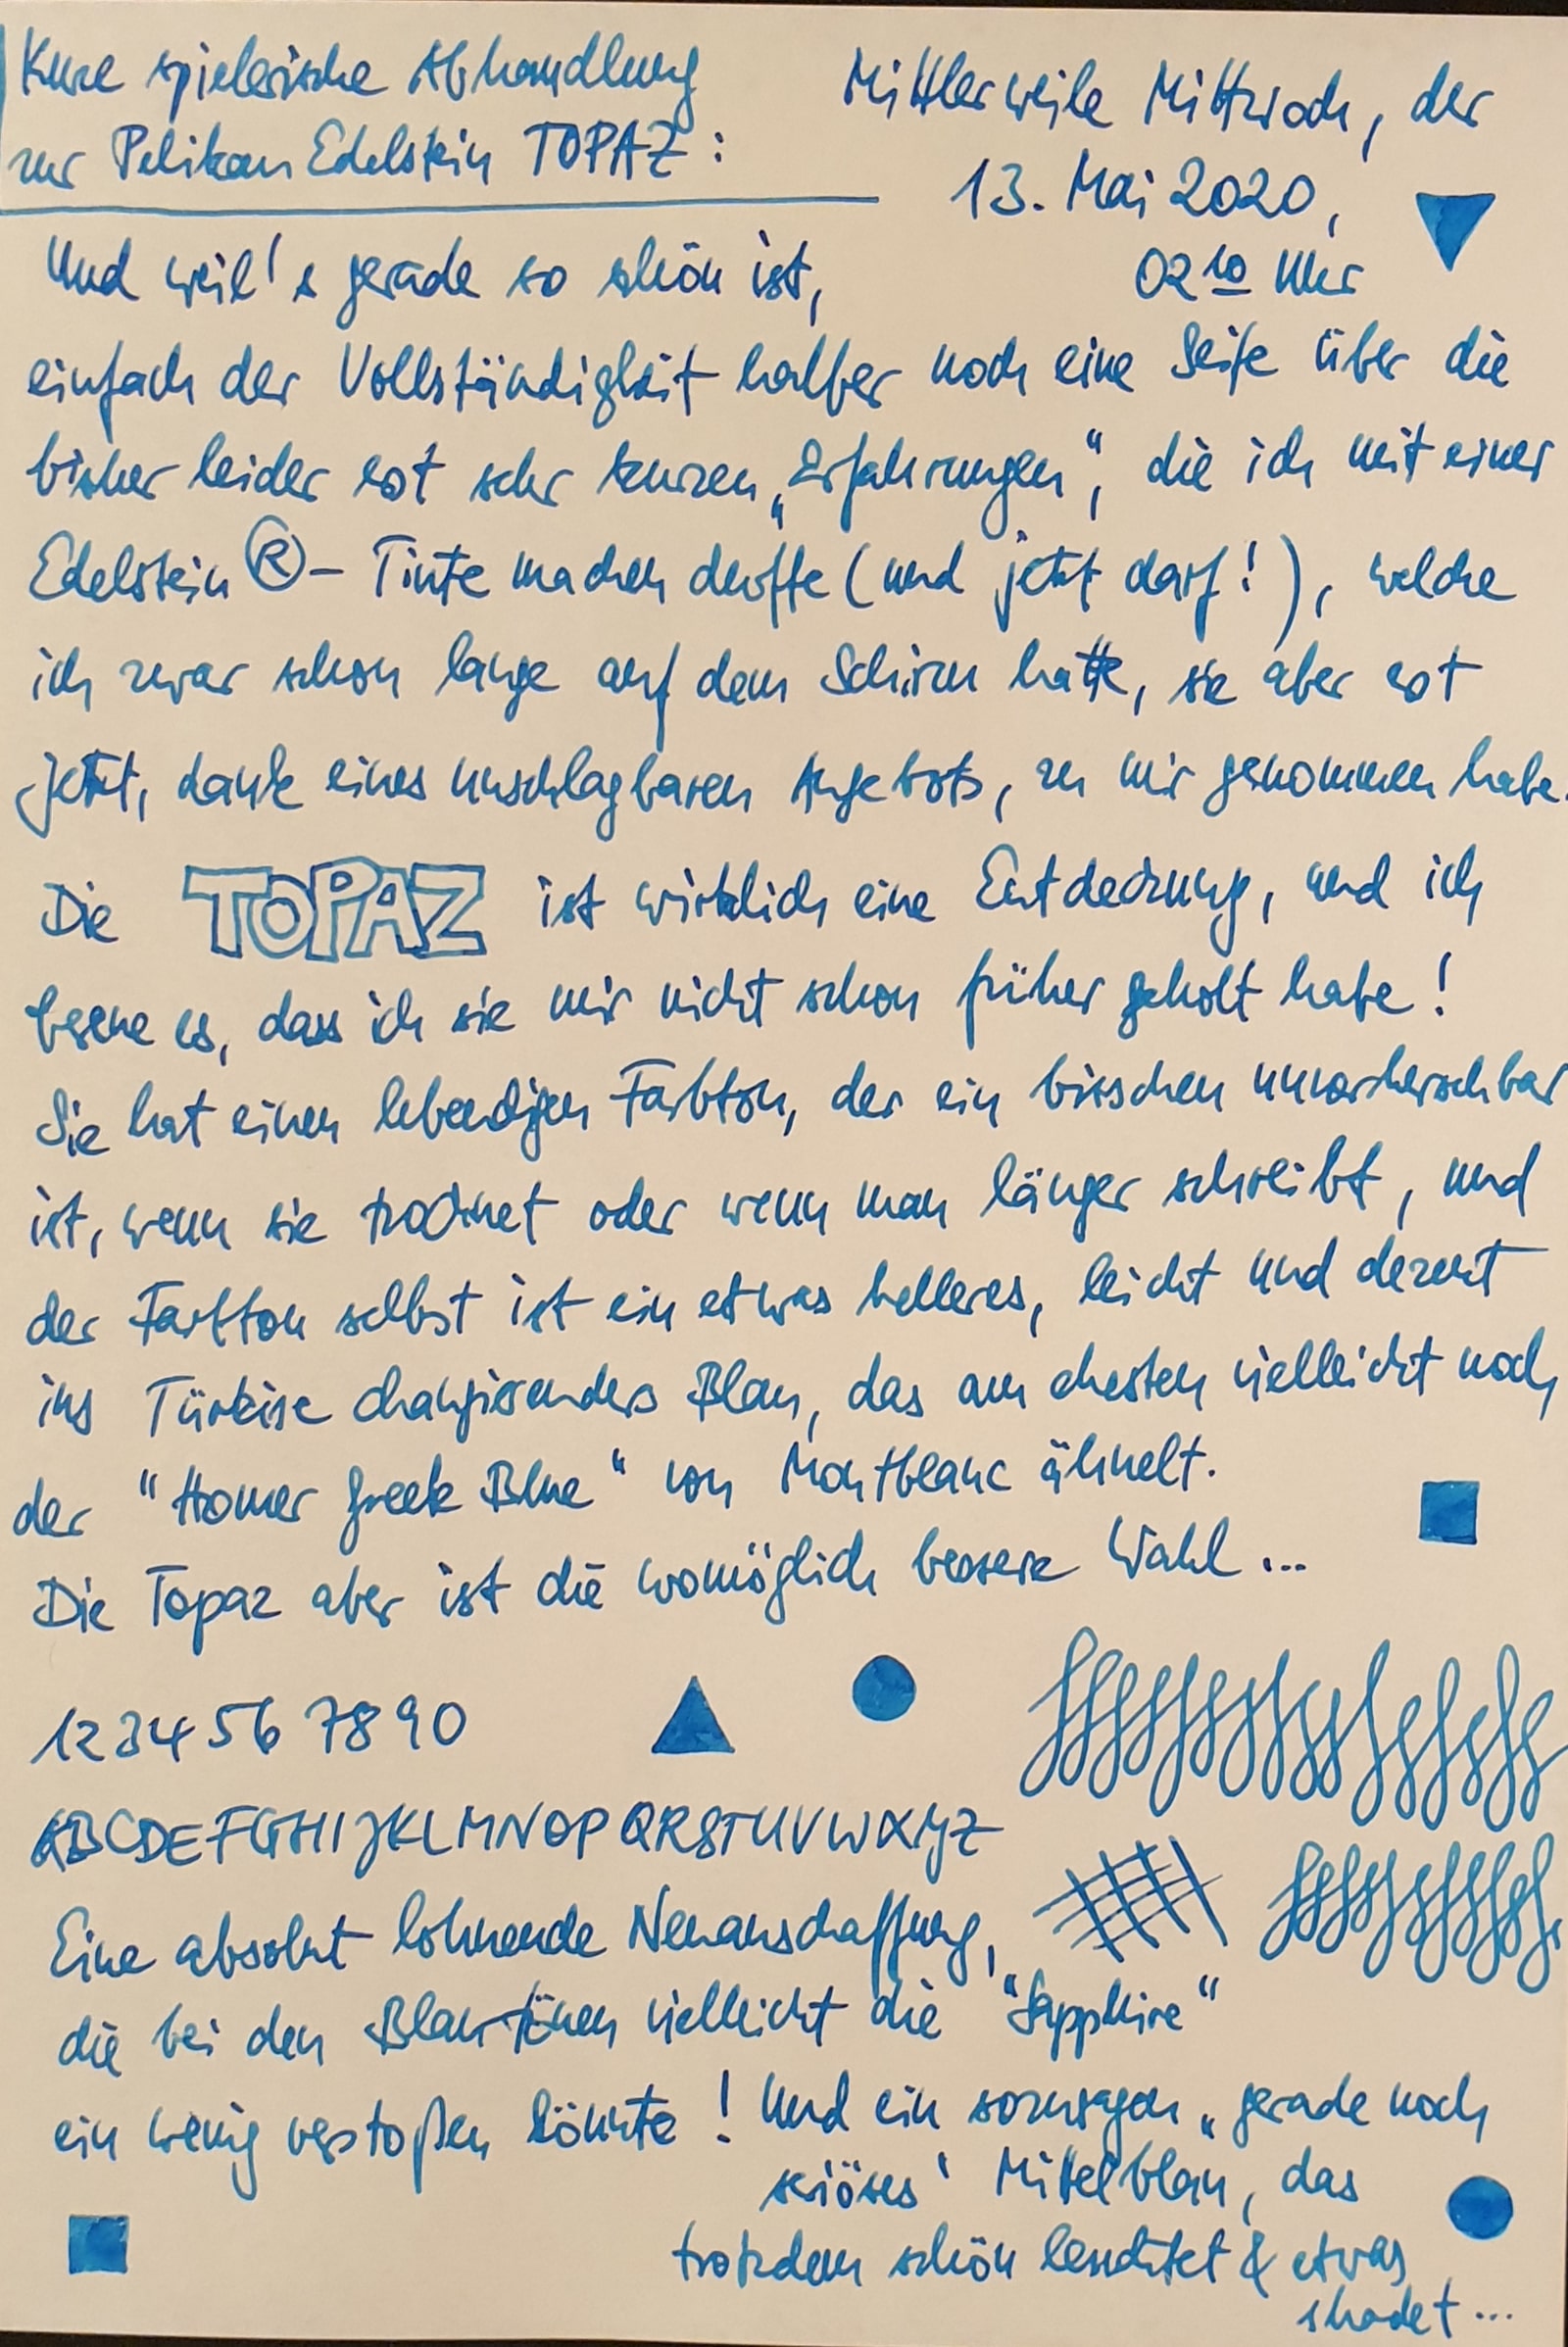 Kurze spielerische Abhandlung
zur Pelikan Edelstein TOPAZ:
Mittlerweile Mittwoch, der
13. Mai 2020,
02 10 Uhr
Und weil's gerade so schön ist,
einfach der Vollständigkeit halber noch eine Seite über die
bisher leider erst sehr kurzen „Erfahrungen“, die ich mit einer
Edelstein ®- Tinte machen durfte (und jetzt darf!), welche
ich zwar schon lange auf dem Schirm hatte, sie aber erst
jetzt, dank eines unschlagbaren Angebots, zu mir genommen habe.
Die TOPAZ ist wirklich eine Entdeckung, und ich
bereue es, dass ich sie mir nicht schon früher geholt habe!
Sie hat einen lebendigen Farbton, der ein bisschen unvorhersehbar
ist, wenn sie trocknet oder wenn man länger schreibt, und
der Farbton selbst ist ein etwas helleres, leicht und dezent
ins Türkise changierendes Blau, das am ehesten vielleicht noch
der "Homer Greek Blue" von Montblanc ähnelt.
Die Topaz aber ist die womöglich bessere Wahl...
1234567890
ABCDEFGHIJKLMNOPQRSTUVWXYZ
Eine absolut lohnende Neuanschaffung,
die bei den Blau-tönen vielleicht die "Sapphire"
ein wenig verstoßen könnte! Und ein sozusagen „gerade noch
seriöses' Mittelblau, das
trotzdem schön leuchtet & etwas
shadet...